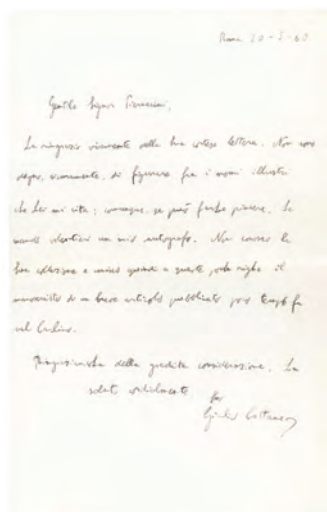 Roma 20-5-60
Gentile Signor
La ringrazio vivamente della Sua cortese lettera. Non sono
degno, sicuramente, di figurare fra i nomi illustri
che Lei mi cita; comunque, se può farLe piacere, Le
mando volentieri un mio autografo. Non conosco la
Sua collezione e unisco quindi a queste poche righe il
manoscritto di un breve articolo pubblicato poco tempo fa
sul
RingraziandoLa della gradita considerazione, La
saluto cordialmente
Suo
Giulio Cattaneo